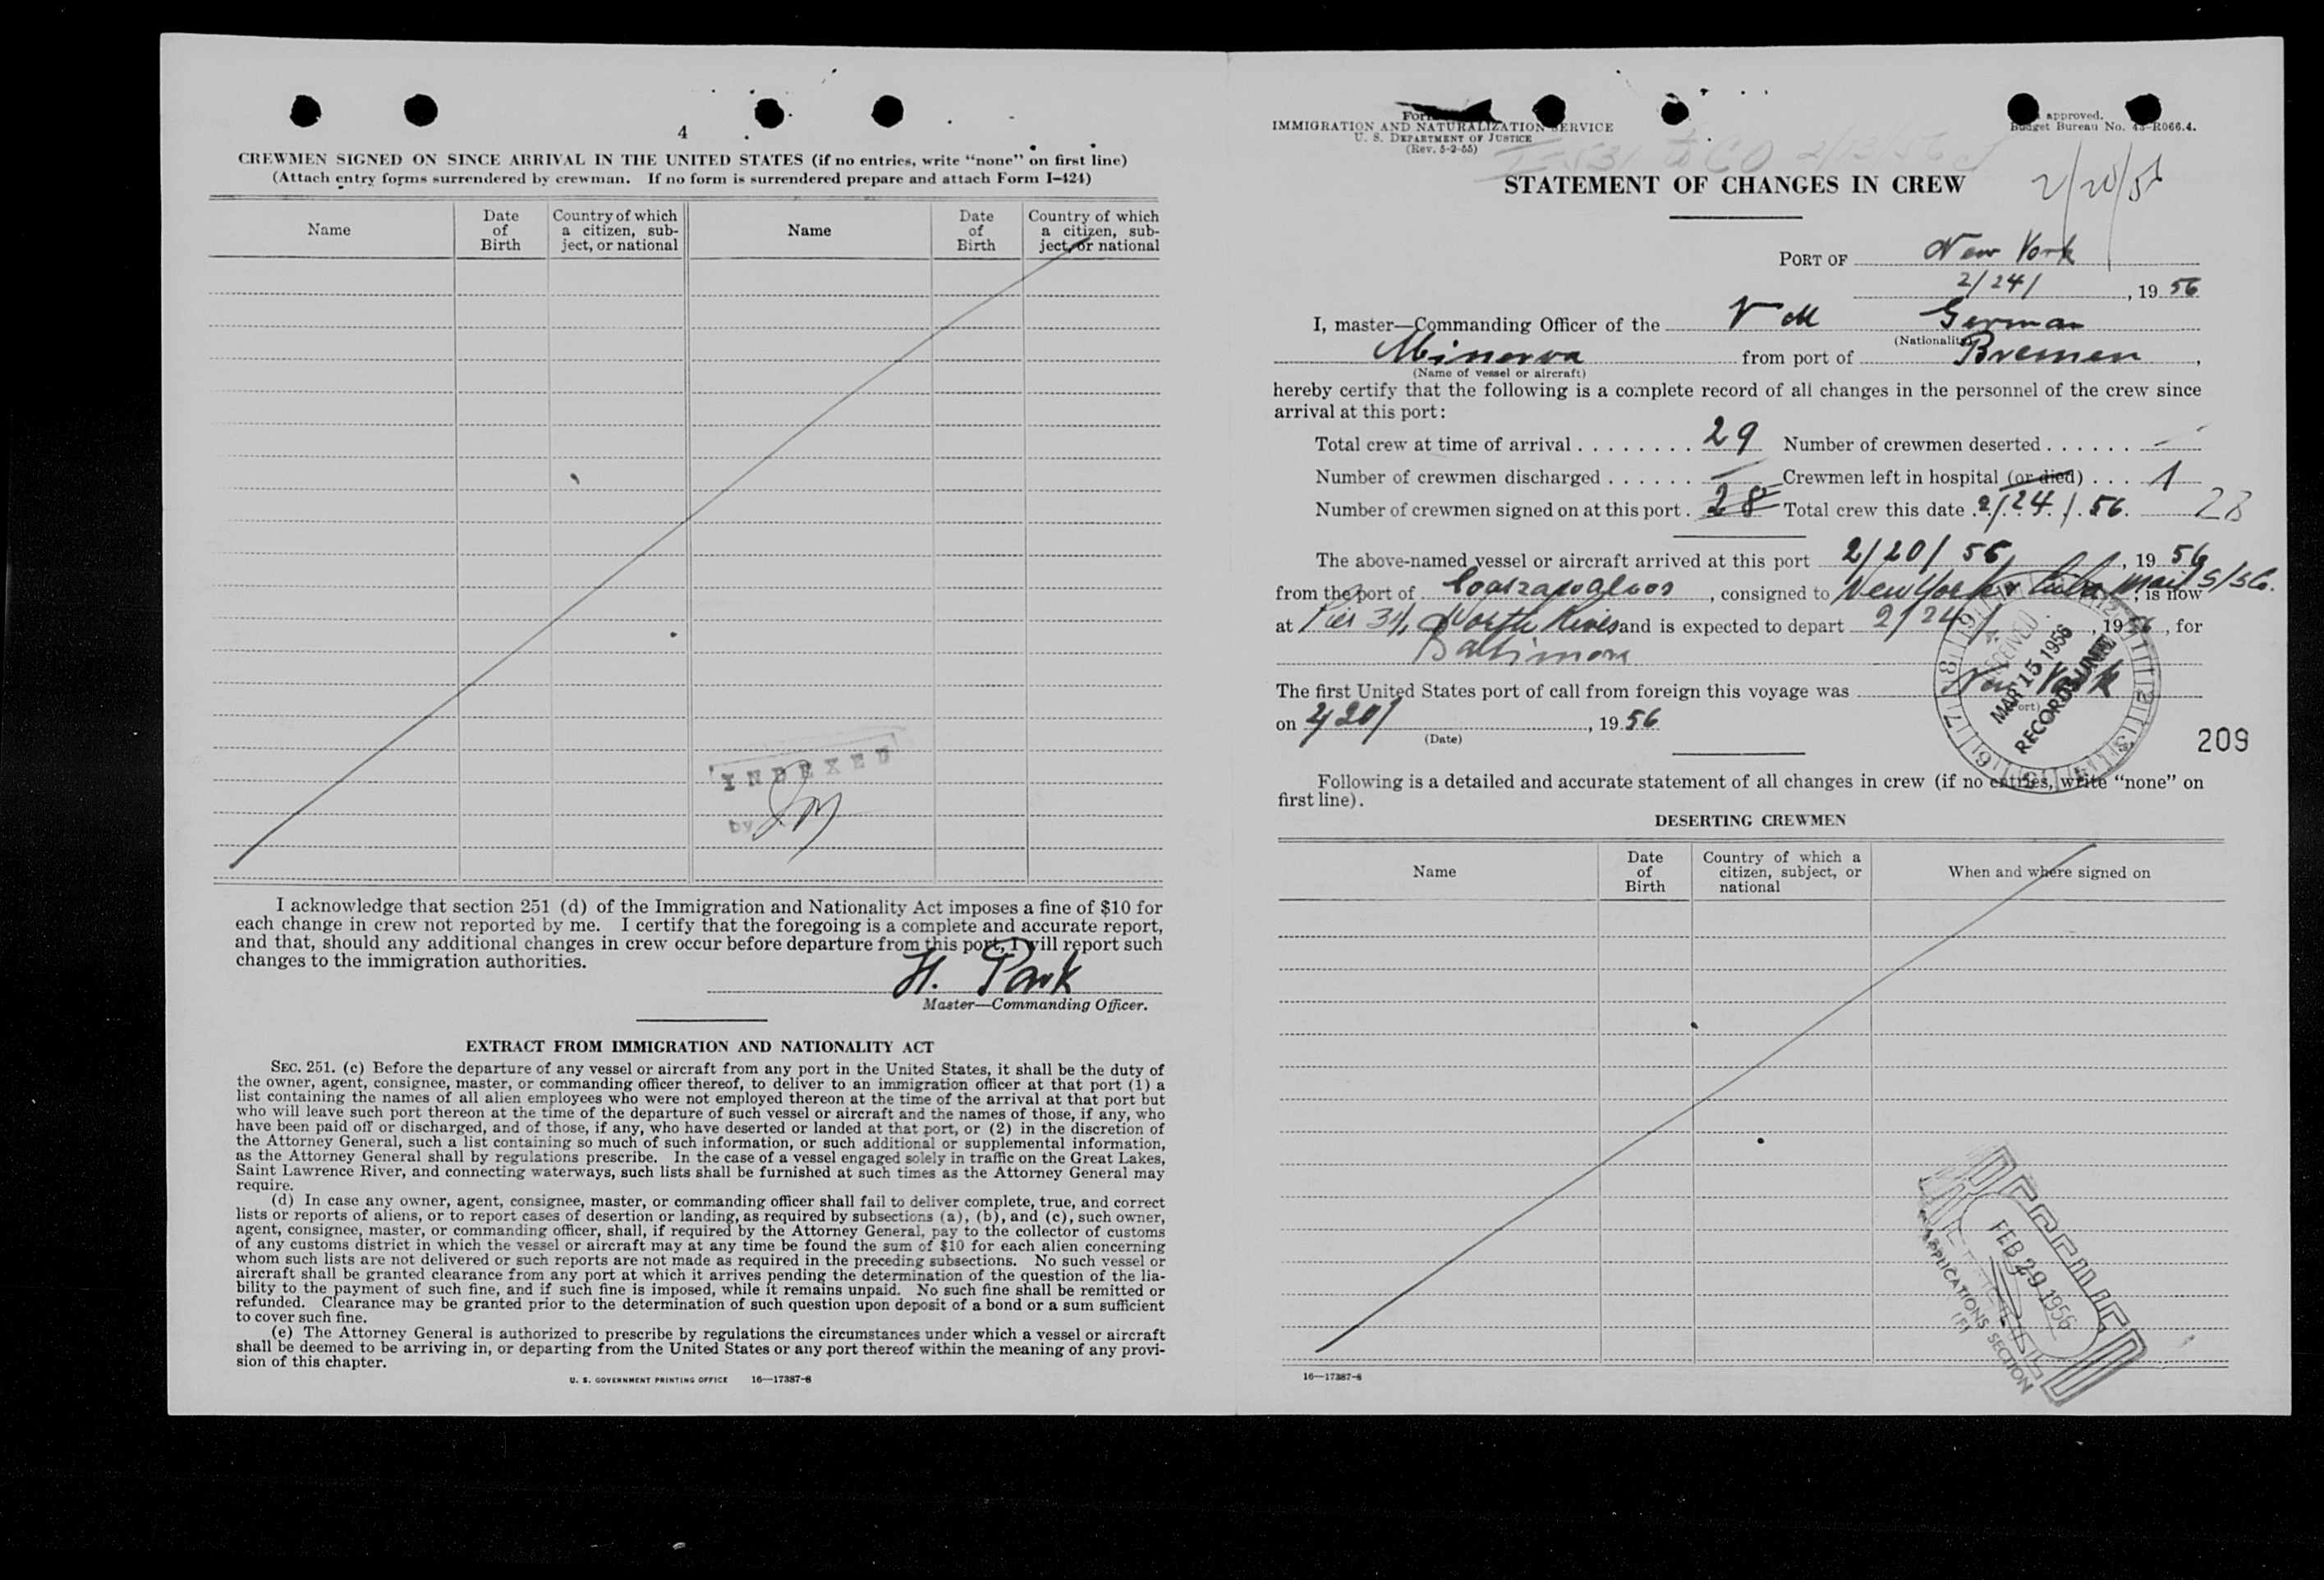 4
CREWMEN SIGNED ON SINCE ARRIVAL IN THE UNITED STATES (if no entries, write "none" on first line)
(Attach entry forms surrendered by crewman. If no form is surrendered prepare and attach Form I-424)
Name Date of Birth Country of which a citizen, sub-ject, or national Name Date of Birth Country of which a citizen, sub-ject, or national
INDEXED
by
I acknowledge that section 251 (d) of the Immigration and Nationality Act imposes a fine of $10 for
each change in crew not reported by me. I certify that the foregoing is a complete and accurate report,
and that, should any additional changes in crew occur before departure from this port, I will report such
changes to the immigration authorities.
H. Pank
Master—Commanding Officer.
EXTRACT FROM IMMIGRATION AND NATIONALITY ACT
SEC. 251. (c) Before the departure of any vessel or aircraft from any port in the United States, it shall be the duty of
the owner, agent, consignee, master, or commanding officer thereof, to deliver to an immigration officer at that port (1) a
list containing the names of all alien employees who were not employed thereon at the time of the arrival at that port but
who will leave such port thereon at the time of the departure of such vessel or aircraft and the names of those, if any, who
have been paid off or discharged, and of those, if any, who have deserted or landed at that port, or (2) in the discretion of
the Attorney General, such a list containing so much of such information, or such additional or supplemental information,
as the Attorney General shall by regulations prescribe. In the case of a vessel engaged solely in traffic on the Great Lakes,
Saint Lawrence River, and connecting waterways, such lists shall be furnished at such times as the Attorney General may
require.
(d) In case any owner, agent, consignee, master, or commanding officer shall fail to deliver complete, true, and correct
lists or reports of aliens, or to report cases of desertion or landing, as required by subsections (a), (b), and (c), such owner,
agent, consignee, master, or commanding officer, shall, if required by the Attorney General, pay to the collector of customs
of any customs district in which the vessel or aircraft may at any time be found the sum of $10 for each alien concerning
whom such lists are not delivered or such reports are not made as required in the preceding subsections. No such vessel or
aircraft shall be granted clearance from any port at which it arrives pending the determination of the question of the lia-
bility to the payment of such fine, and if such fine is imposed, while it remains unpaid. No such fine shall be remitted or
refunded. Clearance may be granted prior to the determination of such question upon deposit of a bond or a sum sufficient
to cover such fine.
(e) The Attorney General is authorized to prescribe by regulations the circumstances under which a vessel or aircraft
shall be deemed to be arriving in, or departing from the United States or any port thereof within the meaning of any provi-
sion of this chapter.
U. S. GOVERNMENT PRINTING OFFICE 16—17387-8
approved.
IMMIGRATION AND NATURALIZATION SERVICE Budget Bureau No. 43-R066.4.
U. S. DEPARTMENT OF JUSTICE
(Rev. 5-2-55)
STATEMENT OF CHANGES IN CREW 2/20/56
PORT OF New York
2/24/, 19 56
I, master—Commanding Officer of the German
(Nationality)
Minerva from port of Bremen,
(Name of vessel or aircraft)
hereby certify that the following is a complete record of all changes in the personnel of the crew since
arrival at this port:
Total crew at time of arrival . . . . . . . . 29 Number of crewmen deserted . . . . . . —
Number of crewmen discharged . . . . . . — Crewmen left in hospital (or died) . . . 1
Number of crewmen signed on at this port . 28 Total crew this date 2/24/56. 28
The above-named vessel or aircraft arrived at this port 2/20/56, 19 56
from the port of , consigned to New York & Cuba Mail S/S Co., is now
at Pier 34, North River and is expected to depart 2/24/, 1956, for
Baltimore
The first United States port of call from foreign this voyage was New York
(Port)
on 2/20/, 19 56
(Date)
RECEIVED
MAR 15 1956
RECORDS UNIT
209
Following is a detailed and accurate statement of all changes in crew (if no entries, write "none" on
first line).
DESERTING CREWMEN
Name Date of Birth Country of which a citizen, subject, or national When and where signed on
RECEIVED
FEB 29 1956
APPLICATIONS SECTION
16—17387-8